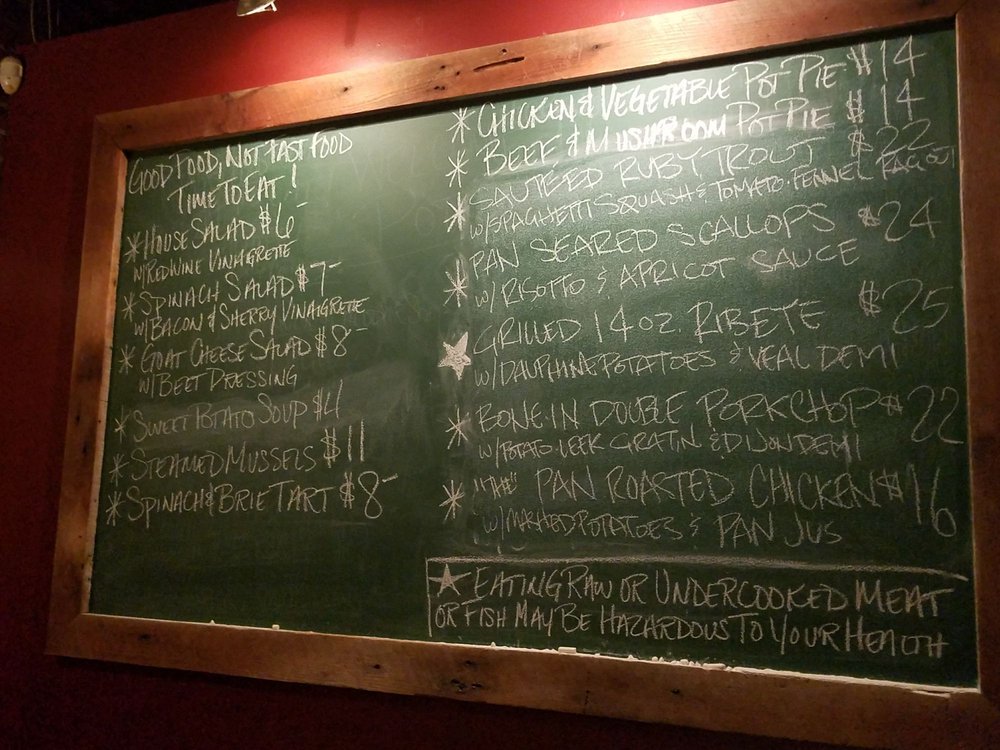 GOOD FOOD, NOT FAST FOOD
TIME TO EAT!
* HOUSE SALAD $6-
W/RED WINE VINAIGRETTE
* SPINACH SALAD $7-
W/BACON & SHERRY VINAIGRETTE
* GOAT CHEESE SALAD $8-
W/BEET DRESSING
* SWEET POTATO SOUP $4
* STEAMED MUSSELS $11
* SPINACH & BRIE TART $8-
* CHICKEN & VEGETABLE POT PIE $14
* BEEF & MUSHROOM POT PIE $14
* SAUTEED RUBY TROUT $22
W/SPAGHETTI SQUASH & TOMATO-FENNEL RAGOUT
* PAN SEARED SCALLOPS $24
W/RISOTTO & APRICOT SAUCE
★ GRILLED 14 OZ. RIBEYE $25
W/DAUPHINE POTATOES & VEAL DEMI
* BONE-IN DOUBLE PORK CHOP $22
W/POTATO-LEEK GRATIN & DIJON DEMI
* "THE" PAN ROASTED CHICKEN $16
W/MASHED POTATOES & PAN JUS
★ EATING RAW OR UNDERCOOKED MEAT
OR FISH MAY BE HAZARDOUS TO YOUR HEALTH